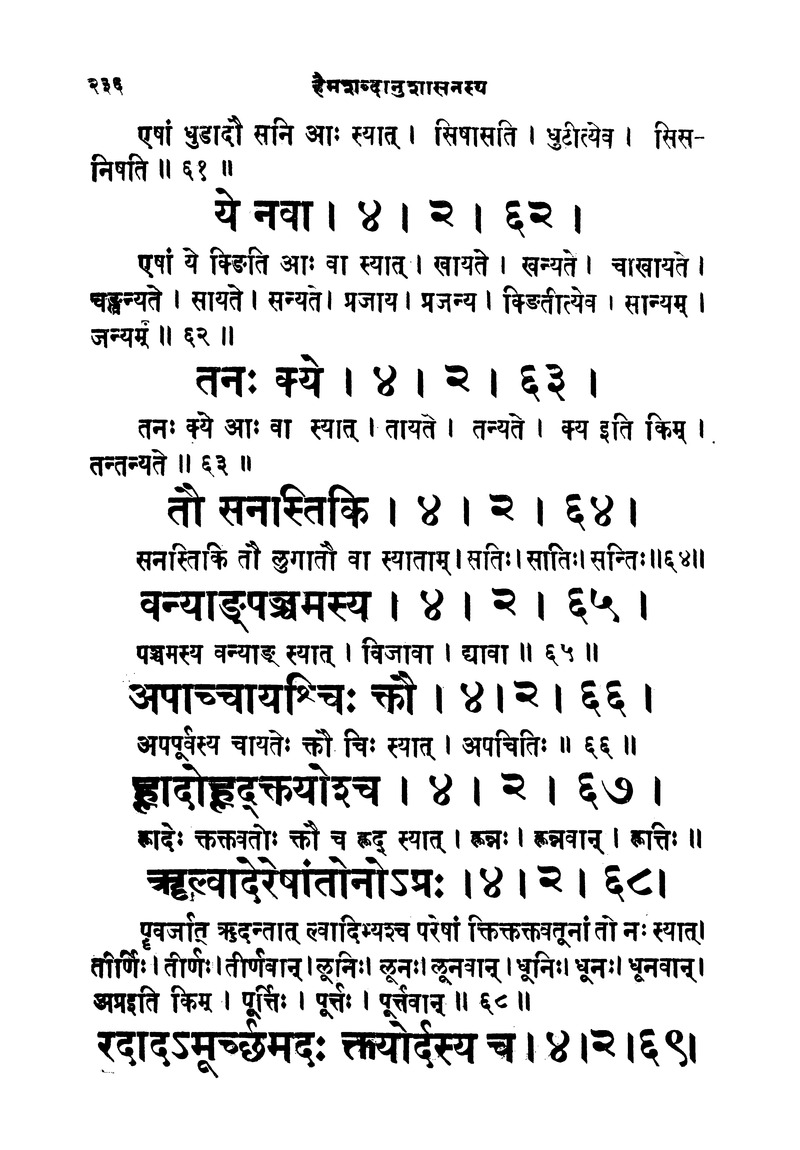 २३६ हैमशब्दानुशासनस्य
एषां धुडादौ सनि आः स्यात् । सिषासति । धुटीत्येव । सिस-
निषति ॥ ६१ ॥
ये नवा । ४ । २ । ६२ ।
एषां ये क्ङिति आः वा स्यात् । खायते । खन्यते । चाखायते ।
चङ्खन्यते । सायते । सन्यते । प्रजाय । प्रजन्य । क्ङितीत्येव । सान्यम् ।
जन्यम् ॥ ६२ ॥
तनः क्ये । ४ । २ । ६३ ।
तनः क्ये आः वा स्यात् । तायते । तन्यते । क्य इति किम् ।
तन्तन्यते ॥ ६३ ॥
तौ सनास्तिकि । ४ । २ । ६४ ।
सनस्तिकि तौ लुगातौ वा स्याताम् । सतिः । सातिः । सन्तिः ॥६४॥
वन्याङ्पञ्चमस्य । ४ । २ । ६५ ।
पञ्चमस्य वन्याङ् स्यात् । विजावा । द्यावा ॥ ६५ ॥
अपाच्चायश्चिः क्तौ । ४ । २ । ६६ ।
अपपूर्वस्य चायतेः क्तौ चिः स्यात् । अपचितिः ॥ ६६ ॥
ह्लादोह्लद्क्तयोश्च । ४ । २ । ६७ ।
ह्लादेः क्तक्तवतोः क्तौ च ह्लद् स्यात् । ह्लन्नः । ह्लन्नवान् । ह्लत्तिः ॥
ऋल्वादेरेषांतोनोऽप्रः । ४ । २ । ६८ ।
पॄवर्जात् ऋदन्तात् ल्वादिभ्यश्च परेषां क्तिक्तक्तवतूनां तो नः स्यात् ।
तीर्णिः । तीर्णः । तीर्णवान् । लूनिः । लूनः । लूनवान् । धूनिः । धूनः । धूनवान् ।
अप्रइति किम् । पूर्त्तिः । पूर्त्तः । पूर्त्तवान् ॥ ६८ ॥
रदादऽमूर्च्छमदः क्तयोर्दस्य च । ४ । २ । ६९ ।